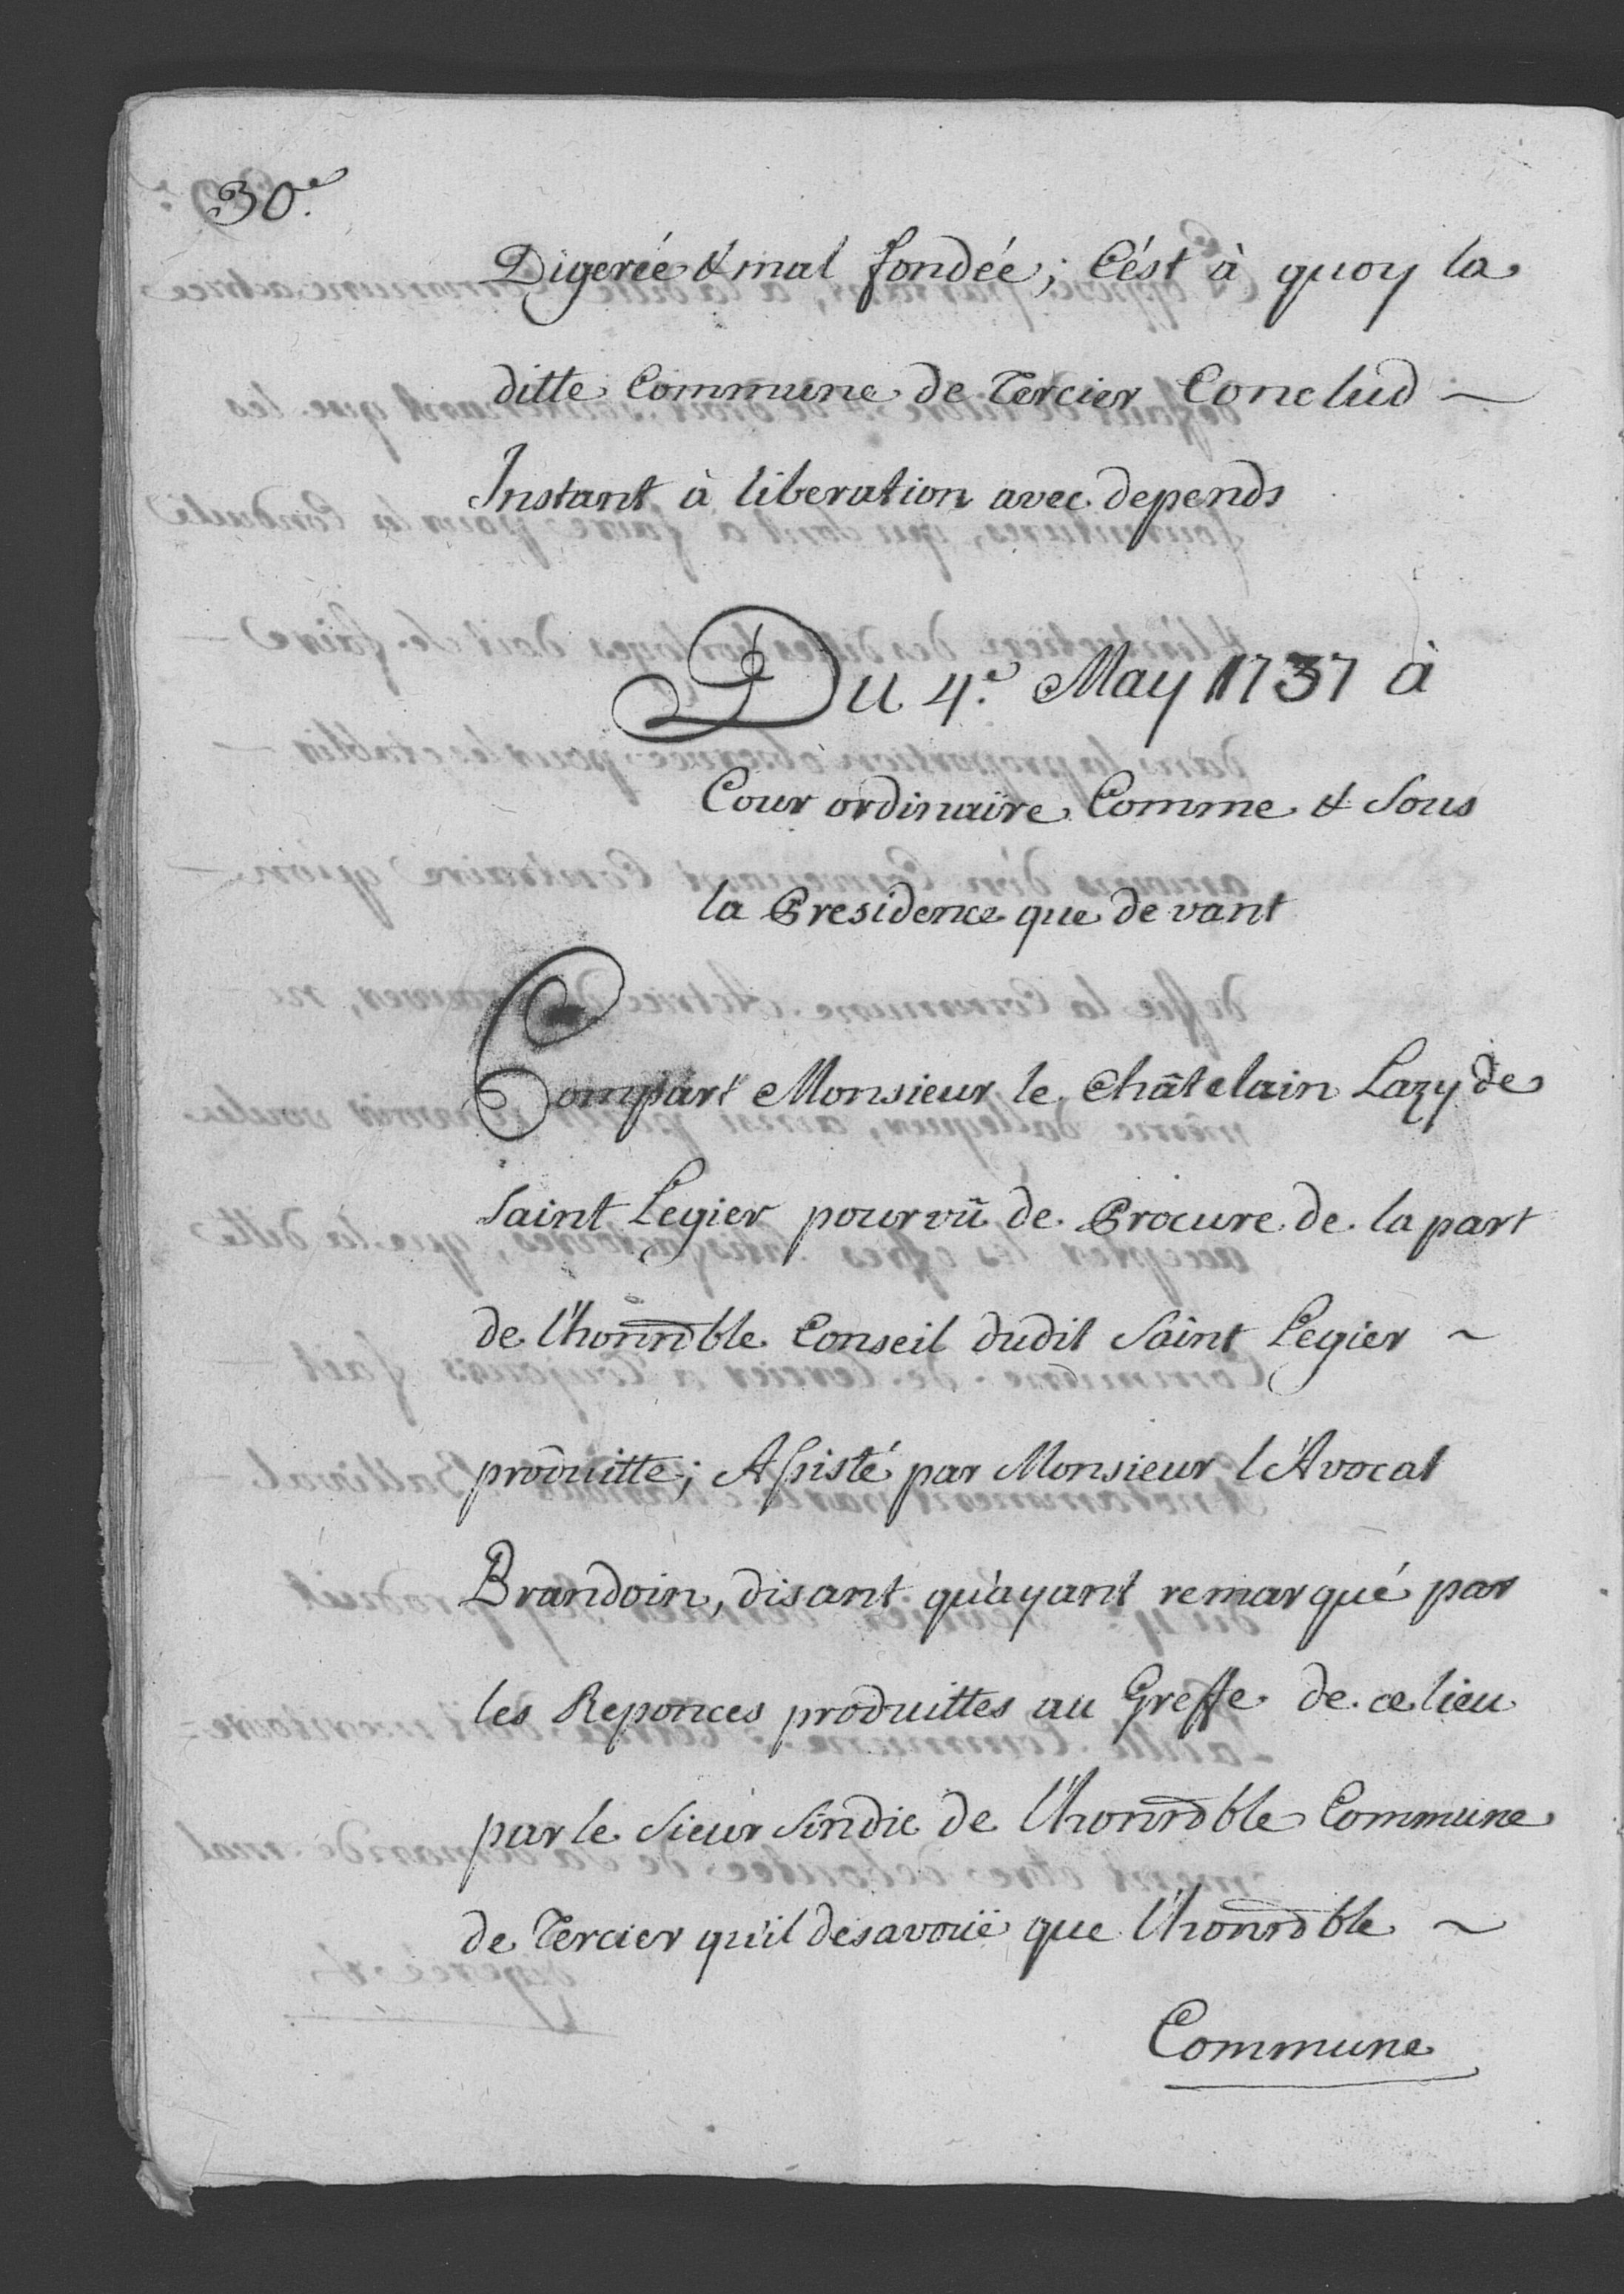 30.e
Digerée & mal fondée; C'ést à quoy la
ditte Commune de Tercier Conclud ~
Instant à liberation avec depends
Du 4.e May 1737 à
Cour ordinaire Comme & Sous
la Presidence que devant
Compart Monsieur le Châtelain Lazy de
Saint Legier pourvû de Procure de la part
de l'honnoble Conseil dudit Saint Legier ~
produitte; Assisté par Monsieur l'Avocat
Brandoin, disant qu'ayant remarqué par
les Reponces produittes au Greffe de ce lieu
par le Sieur Sindic de l'honnoble Commune
de Tercier qu'il desavouë que l'honnoble ~
Commune